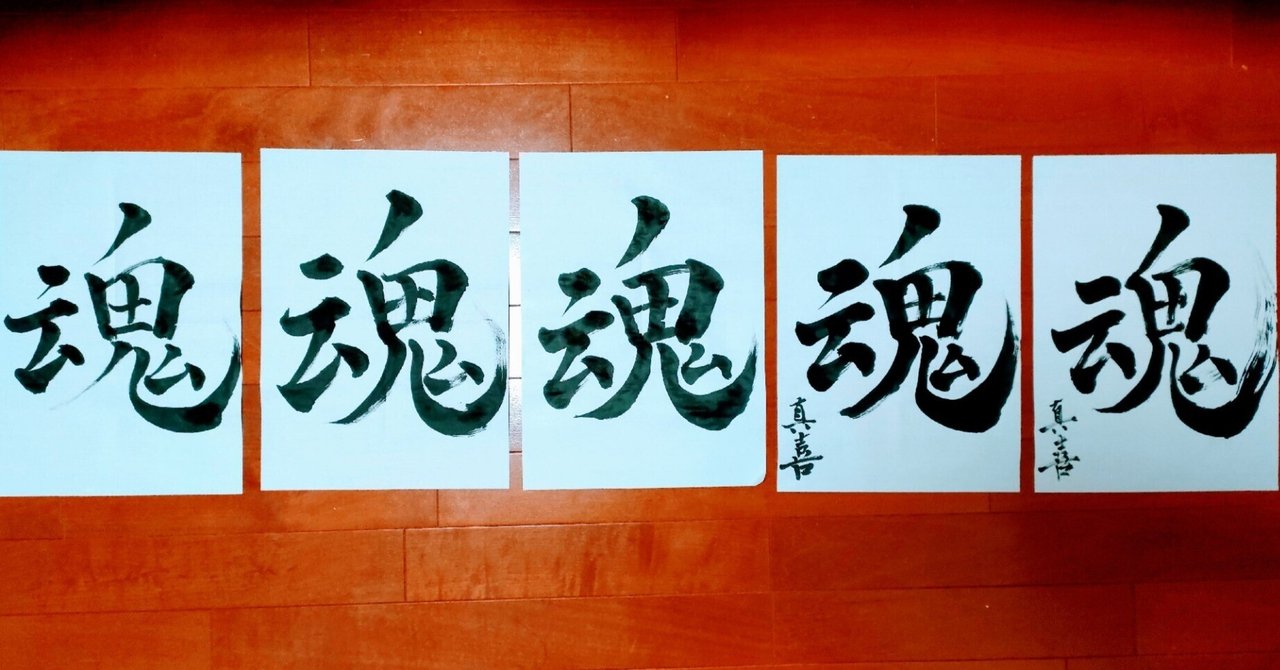 魂
魂
魂
魂
真喜
魂
真喜